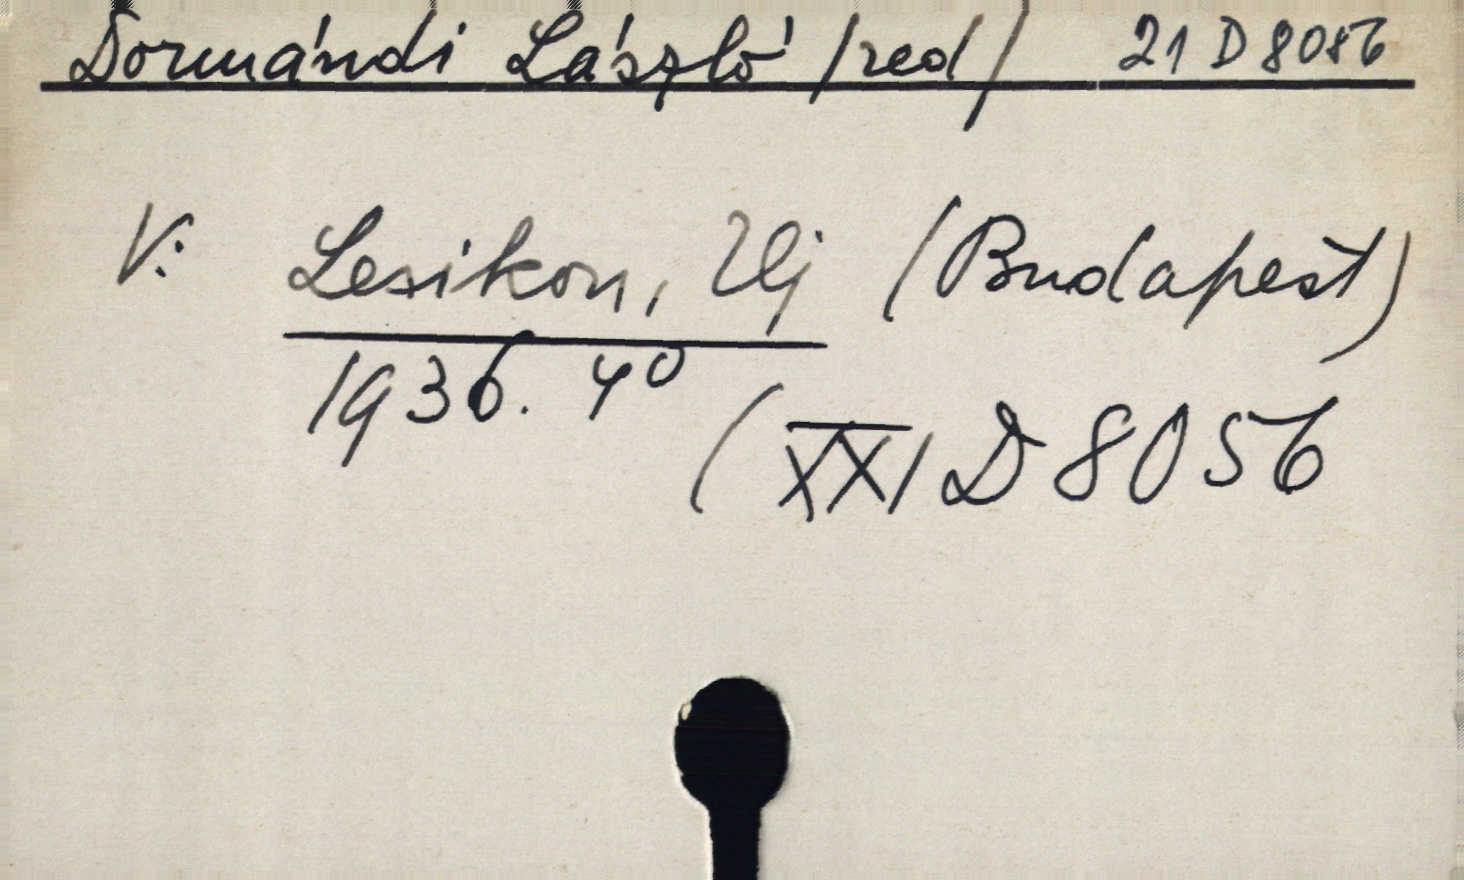 Dormándi László /red/ 21 D 8056
V: Lexikon, Uj (Budapešt)
1936. 4⁰
(XXI D 8056